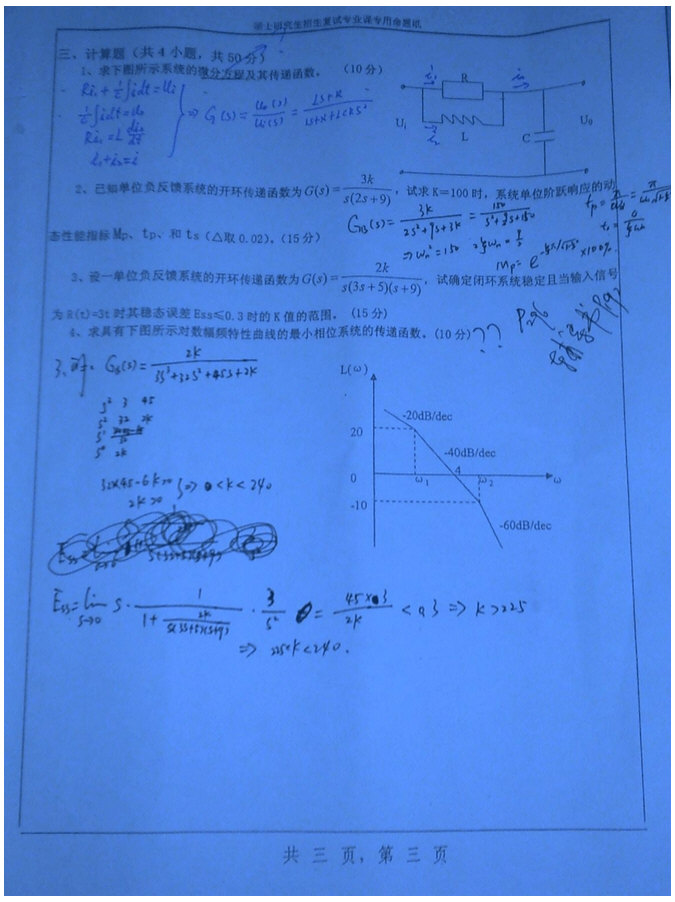 硕士研究生招生复试专业课专用命题纸
三、计算题（共 4 小题，共 50 分）
1、求下图所示系统的微分方程及其传递函数。 （10 分）
Ri₁+1/c∫idt=Ui
1/c∫idt=u₀
Ri₁=L di₂/dt
i₁+i₂=i
⇒ G(s)=U₀(s)/Ui(s)=(LS+R)/(LS+R+LCRS²)
i₁
R
i₂
L
U₁
C
U₀
2、已知单位负反馈系统的开环传递函数为 G(s)=3k/(s(2s+9))，试求 K=100 时，系统单位阶跃响应的动
态性能指标 Mp、tp、和 ts（△取 0.02）。（15 分）
3、设一单位负反馈系统的开环传递函数为 G(s)=2k/(s(3s+5)(s+9))，试确定闭环系统稳定且当输入信号
为 R(t)=3t 时其稳态误差 Ess≤0.3 时的 K 值的范围。 （15 分）
4、求具有下图所示对数幅频特性曲线的最小相位系统的传递函数。（10 分）??
G_B(s)=2k/(3s³+32s²+45s+2k)
s³ 3 45
s² 32 2k
s¹
s⁰ 2k
32×45-6k>0
2k>0
⇒ 0<k<240
Ess=lim s→0 s·1/(1+2k/(s(3s+5)(s+9)))·3/s² = 45×3/2k <0.3 ⇒ k>225
⇒ 225<k<240.
L(ω)
-20dB/dec
20
-40dB/dec
4
0
ω₁
ω₂
ω
-10
-60dB/dec
共 三 页，第 三 页